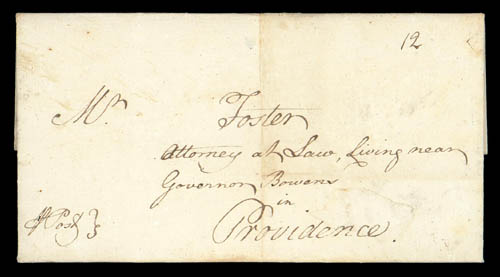 12
Mr. Foster
Attorney at Law, Living near
Governor Bowens
in
Providence.
Post